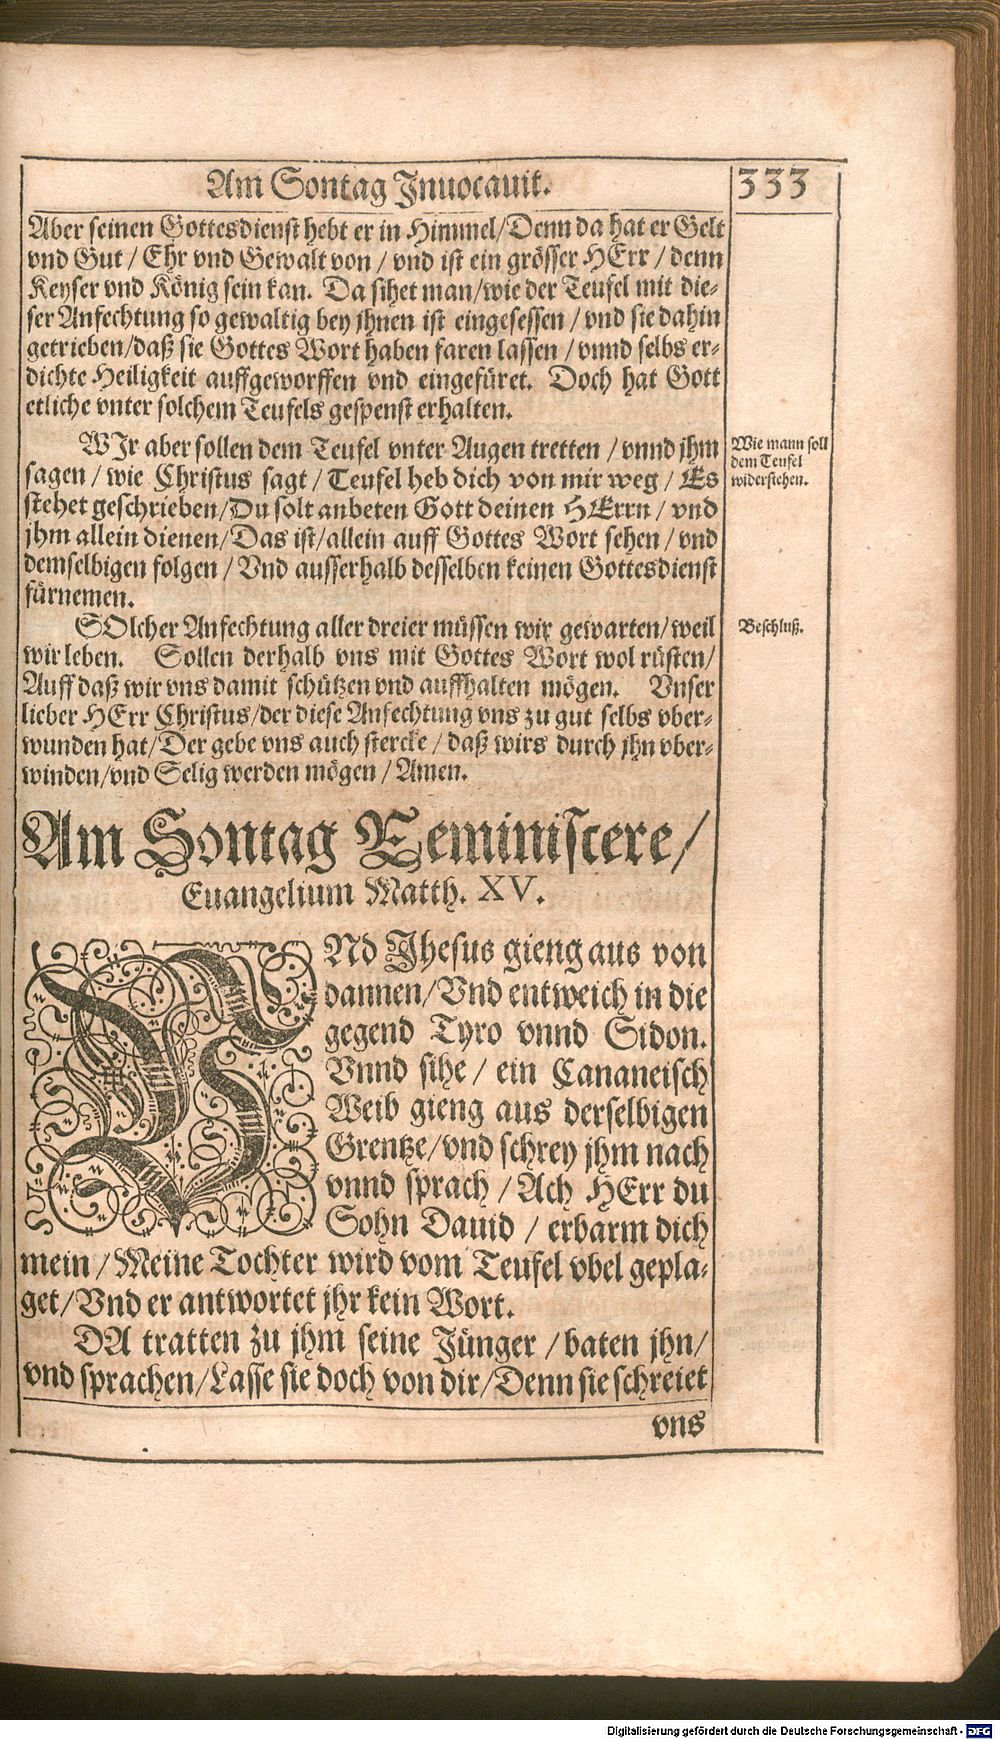 Am Sontag Inuocauit. 333
Aber seinen Gottesdienst hebt er in Himmel/Denn da hat er Gelt
vnd Gut / Ehr vnd Gewalt von / vnd ist ein grösser HErr / denn
Keyser vnd König sein kan. Da sihet man/wie der Teufel mit die-
ser Anfechtung so gewaltig bey jhnen ist eingesessen / vnd sie dahin
getrieben/daß sie Gottes Wort haben faren lassen / vnnd selbs er-
dichte Heiligkeit auffgeworffen vnd eingefüret. Doch hat Gott
etliche vnter solchem Teufels gespenst erhalten.
WIr aber sollen dem Teufel vnter Augen tretten / vnnd jhm
sagen / wie Christus sagt / Teufel heb dich von mir weg / Es
stehet geschrieben/Du solt anbeten Gott deinen HErrn / vnd
jhm allein dienen/Das ist/allein auff Gottes Wort sehen / vnd
demselbigen folgen / Vnd ausserhalb desselben keinen Gottesdienst
fürnemen.
Wie mann soll
dem Teufel
widerstehen.
SOlcher Anfechtung aller dreier müssen wir gewarten/weil
wir leben. Sollen derhalb vns mit Gottes Wort wol rüsten/
Auff daß wir vns damit schützen vnd auffhalten mögen. Vnser
lieber HErr Christus/der diese Anfechtung vns zu gut selbs vber-
wunden hat/Der gebe vns auch stercke / daß wirs durch jhn vber-
winden/vnd Selig werden mögen / Amen.
Beschluß.
Am Sontag Reminiscere/
Euangelium Matth. XV.
VNd Jhesus gieng aus von
dannen/Vnd entweich in die
gegend Tyro vnnd Sidon.
Vnnd sihe / ein Cananeisch
Weib gieng aus derselbigen
Grentze/vnd schrey jhm nach
vnnd sprach / Ach HErr du
Sohn Dauid / erbarm dich
mein / Meine Tochter wird vom Teufel vbel gepla-
get/Vnd er antwortet jhr kein Wort.
DA tratten zu jhm seine Jünger / baten jhn/
vnd sprachen/Lasse sie doch von dir/Denn sie schreiet
vns
Digitalisierung gefördert durch die Deutsche Forschungsgemeinschaft - DFG